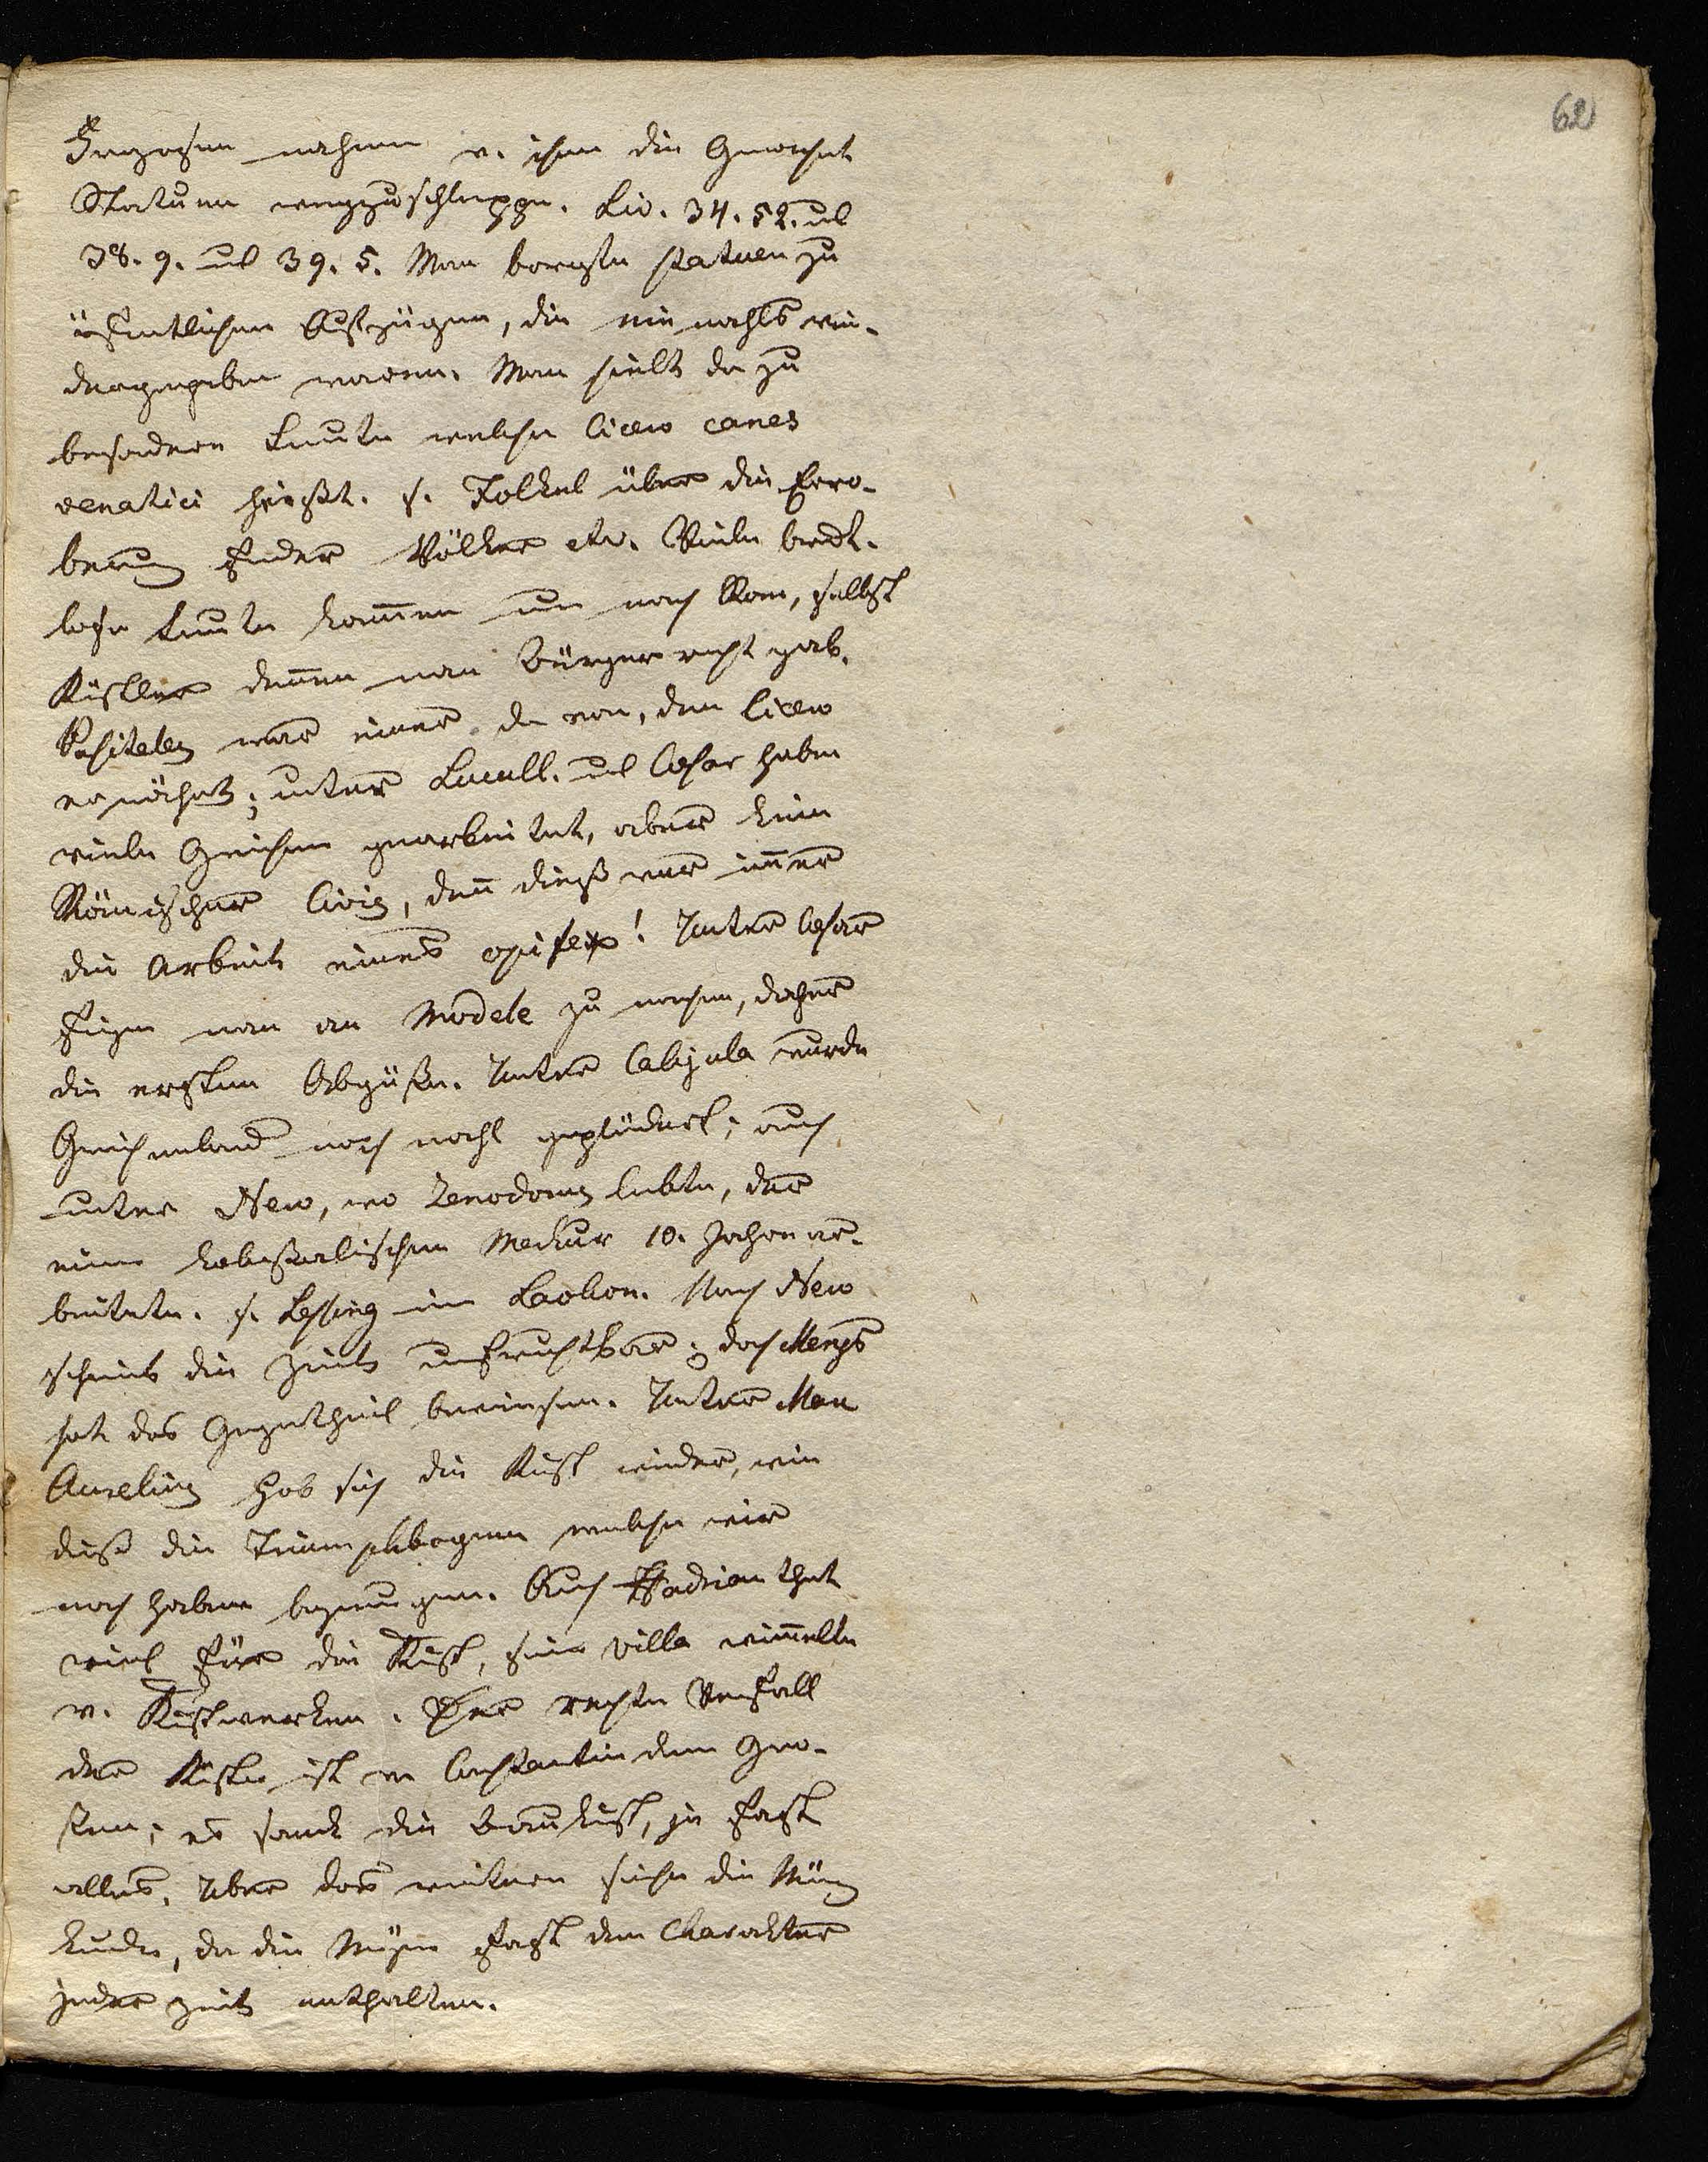 62
Franzosen nahmen v. ihnen die Gewohnh.
Statuen wegzuschleppen. Liv. 34. 52. und
38. 9. und 39. 5. Man borgte statuen zu
öffentlichen Aufzügen, die nie nachls wie-
dergegeben waren. Man hielt da zu
besondere Leute welche Cicero canes
venatici heißt. s. Völkel über die Erero-
berung fremder Völker etc. Viele brodt-
lose Leute kamen nun nach Rom, selbst
Küstler denen man Bürgerrecht gab.
Pasiteles war einer da von, den Cicero
erwähnt; unter Lucull. und Caesar haben
viele Griechen gearbeitet, aber kein
Römischer Civis, den dieß war immer
die Arbeit eines opifex! Unter Caesar
fieng man an Modele zu machen, daher
die ersten Abgüße. Unter Caligula wurde
Griechenland noch mahl geplündert; auch
unter Nero, wo Zenodorus lebte, der
einen koloßalischen Merkur 10. Jahre ar-
beitete. s. Lessing im Laokon. Nach Nero
scheint die Zeit unfruchtbar; doch Mengs
hat das Gegentheil bewiesen. Unter Marc
Aurelius hob sich die Kunst wieder, wie
dieß die Triumphbogenen welche wir
noch haben bezeugen. Auch Hadrian that
viel für die Kunst, seine Villa wimmelte
v. Kunstwerken. Der rechte Verfall
der Künste ist v. Constantin dem Gro-
ßen; es sank die Baukunst, ja fast
alles. Uber das weitere siehe die Münz
kunde, da die Münzen fast den Charakter
jeder Zeit enthalten.